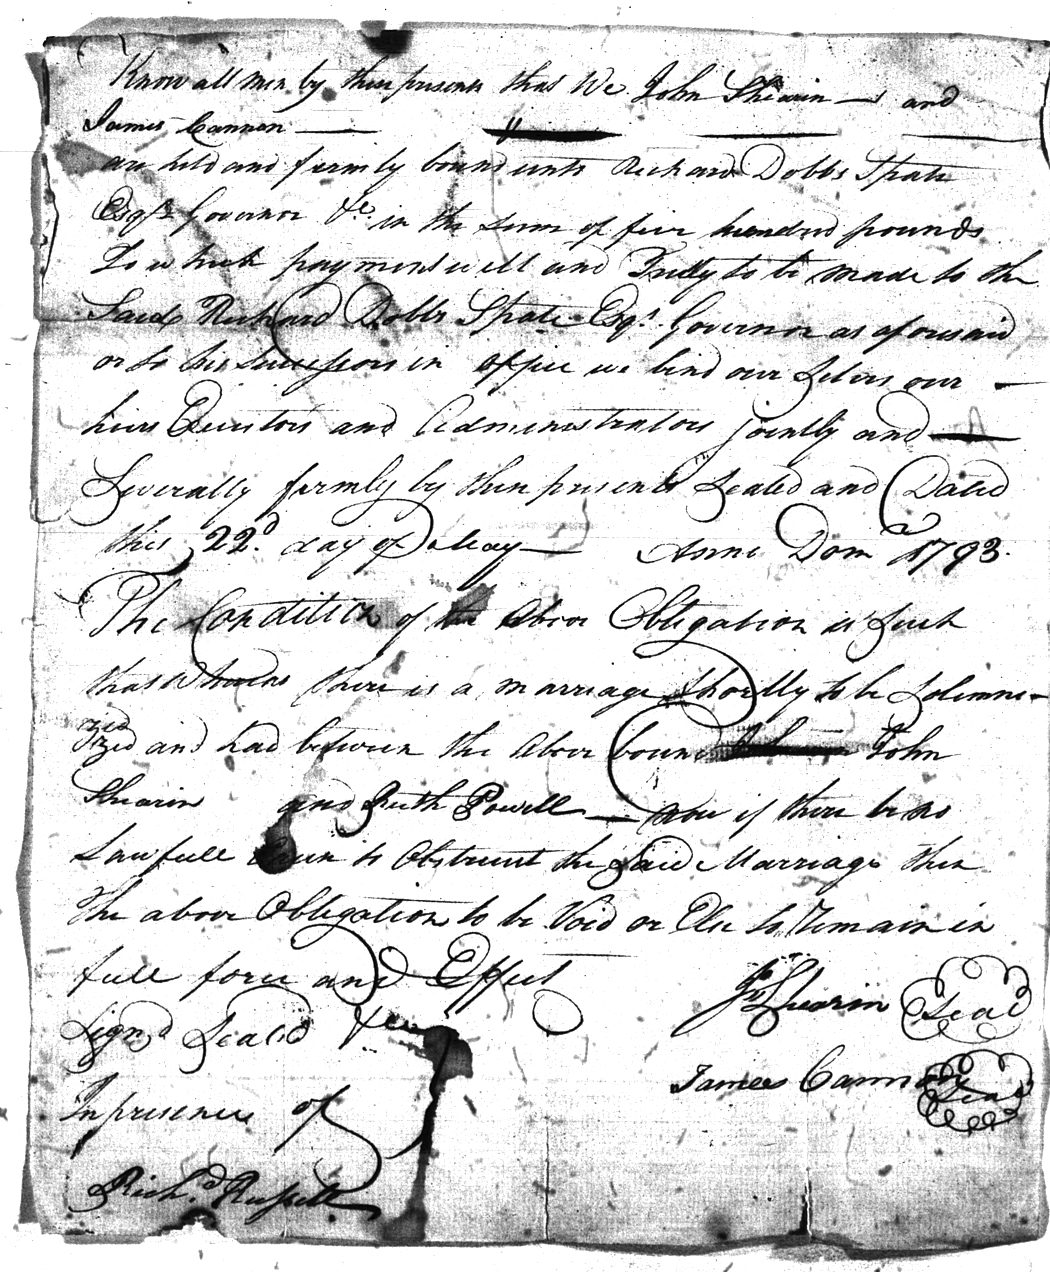 Know all men by these presents that We John Shearin and
James Cannon
are held and firmly bound unto Richard Dobbs Spate
Esqr. Governor &c. in the sum of five hundred pounds
To which payment well and Truly to be made to the
Said Richard Dobbs Spate Esqr. Governor as aforesaid
or to his Successors in office we bind our Selves our
heirs Executors and Administrators jointly and
Severally firmly by these presents Sealed and Dated
this 22d. day of May Anno Dom 1793.
The Condition of the Above Obligation is Such
that Whereas there is a marriage Shortly to be Solemne-
zed and had between the Above bound John
Shearin and Ruth Powell now if there be no
Lawfull to Obstruct the Said Marriage then
the above Obligation to be Void or Else to Remain in
full force and Effect
Signd Seald &c
Jno Shearin Seal
In presence of
James Cannon Seal
Richd. Russell